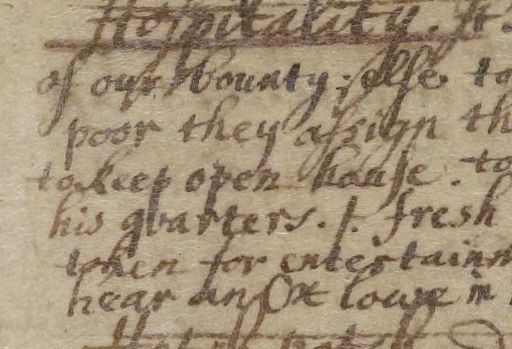 Hospitality. It
of our bounty; else to
poor they assign th
to keep open house. to
his quarters. f. fresh
token for entertainm
hear an Ox lowe in